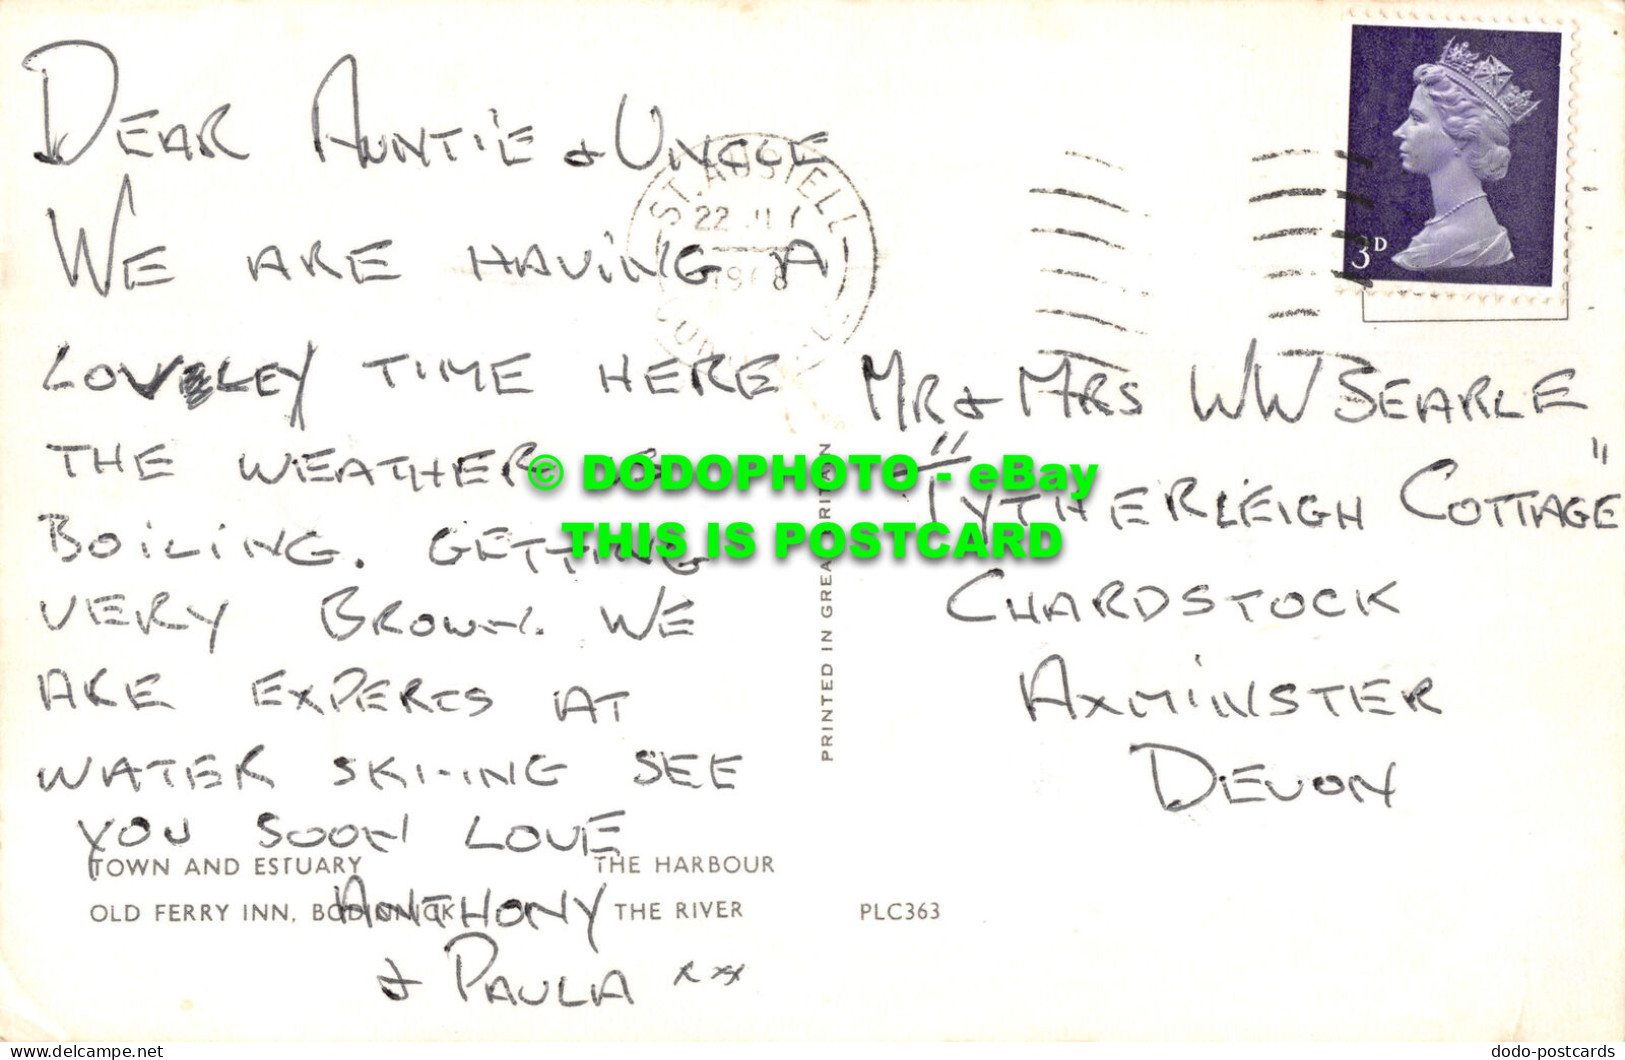 DEAR AUNTIE & UNCLE
WE ARE HAVING A
LOVELEY TIME HERE
THE WEATHER IS
BOILING. GETTING
VERY BROWN. WE
ARE EXPERTS AT
WATER SKI-ING SEE
YOU SOON LOVE
ANTHONY
& PAULA xxx
TOWN AND ESTUARY THE HARBOUR
OLD FERRY INN, BODINNICK THE RIVER
PLC363
PRINTED IN GREAT BRITAIN
ST. AUSTELL
22
1968
3D
MR & MRS WW SEARLE
"TYTHERLEIGH COTTAGE"
CHARDSTOCK
AXMINSTER
DEVON
© DODOPHOTO - eBay
THIS IS POSTCARD
delcampe.net
dodo-postcards